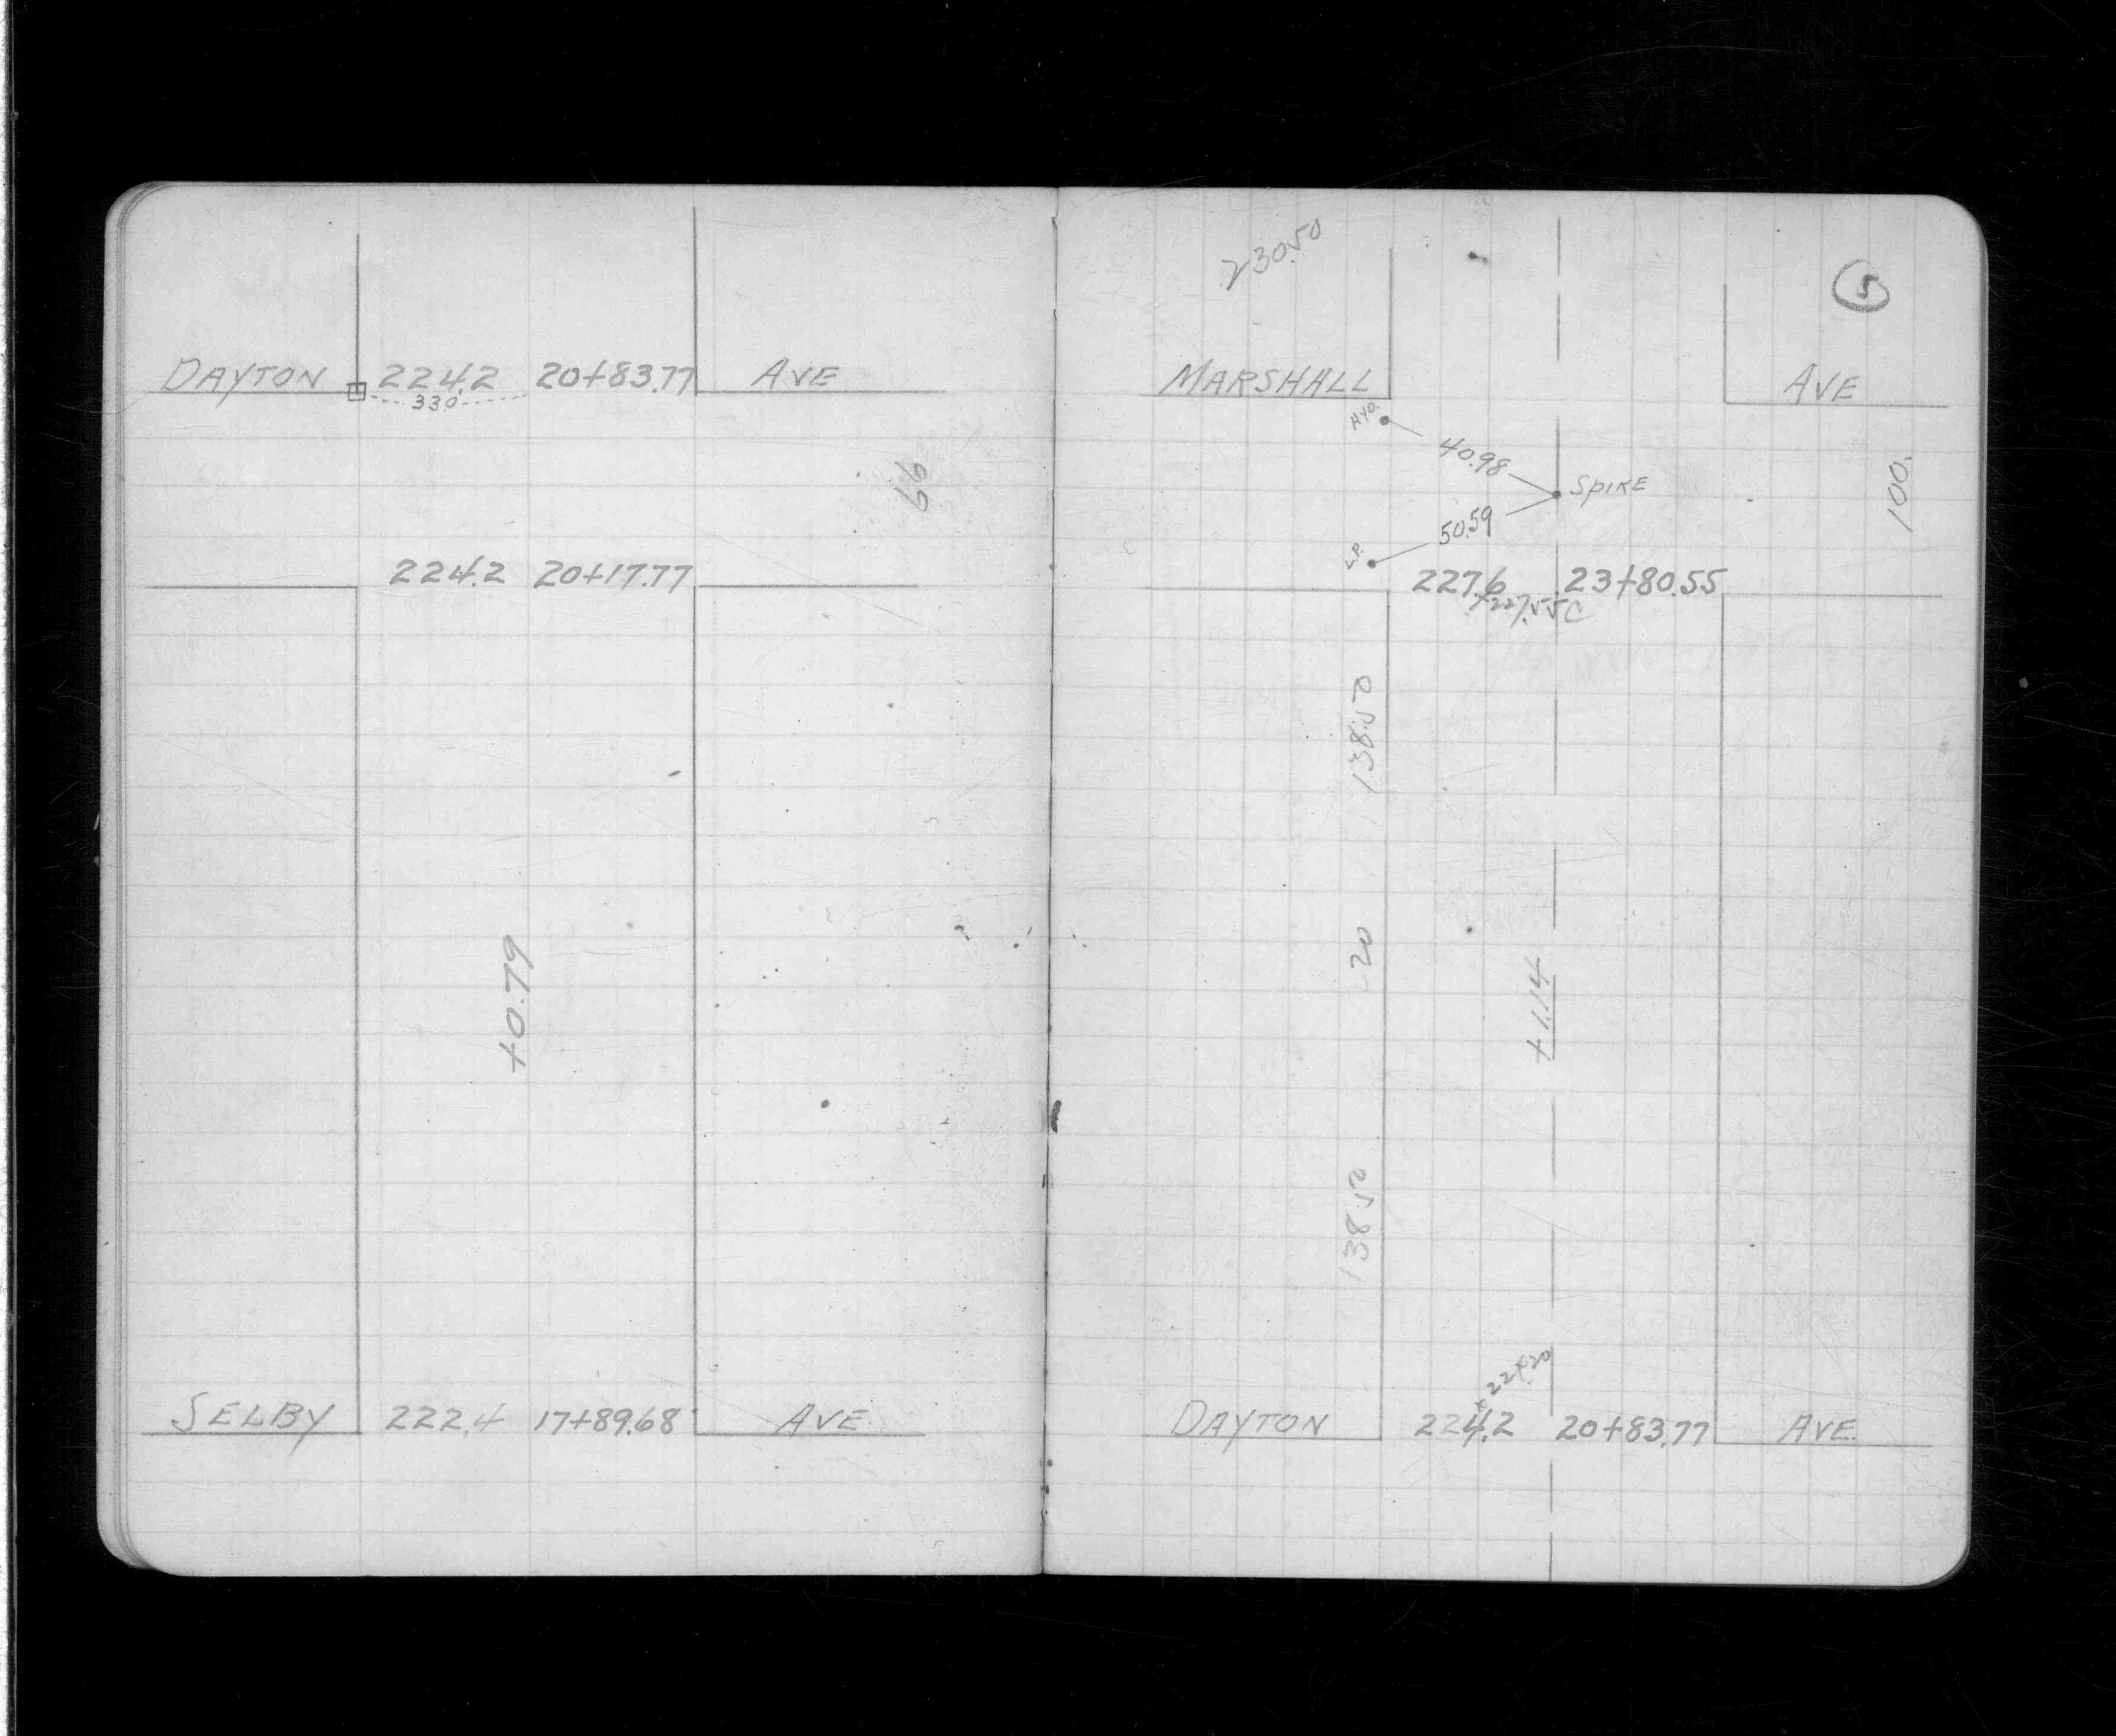 DAYTON 224.2 20+83.77 AVE
33.0
66
224.2 20+17.77
+0.79
SELBY 222.4 17+89.68 AVE
230.50
5
MARSHALL AVE
HYD.
40.98
SPIKE
100.
50.59
227.6 23+80.55
138.50
20
+1.14
138.50
DAYTON 224.2 20+83.77 AVE.